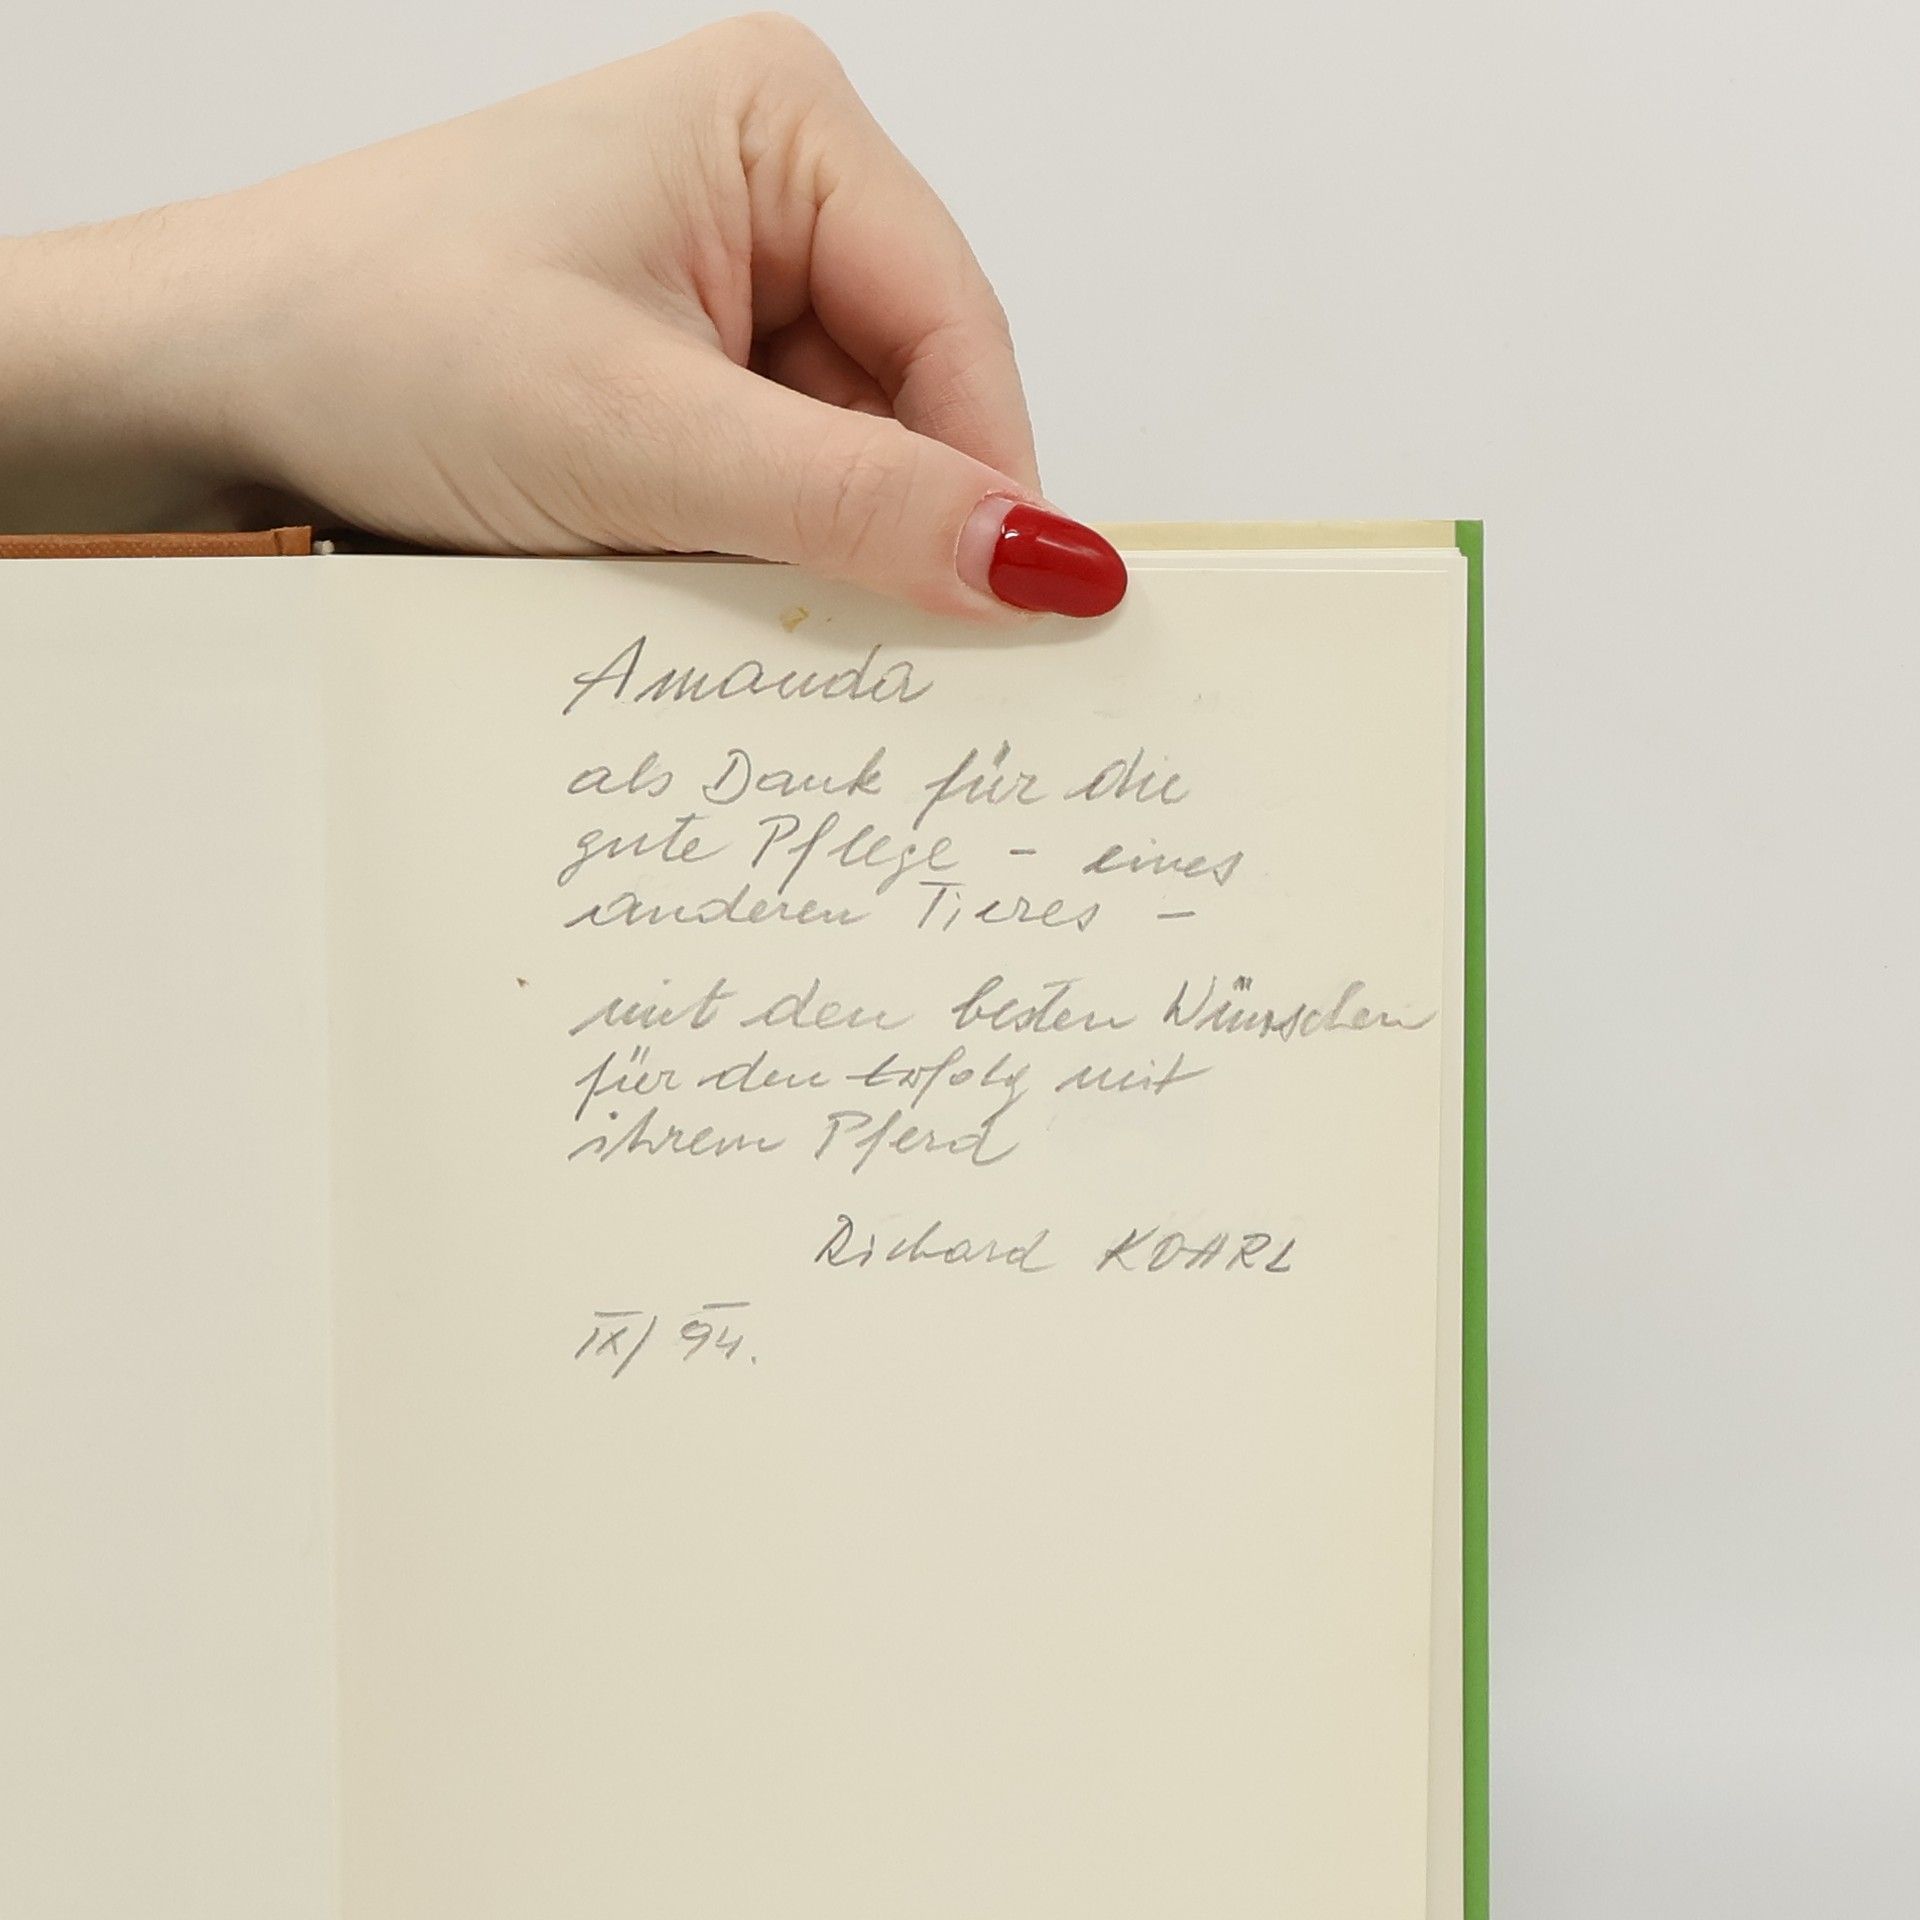 Amanda
als Dank für die
gute Pflege - eines
anderen Tieres -
mit den besten Wünschen
für den Erfolg mit
ihrem Pferd
Richard KOARL
IX/ 94.